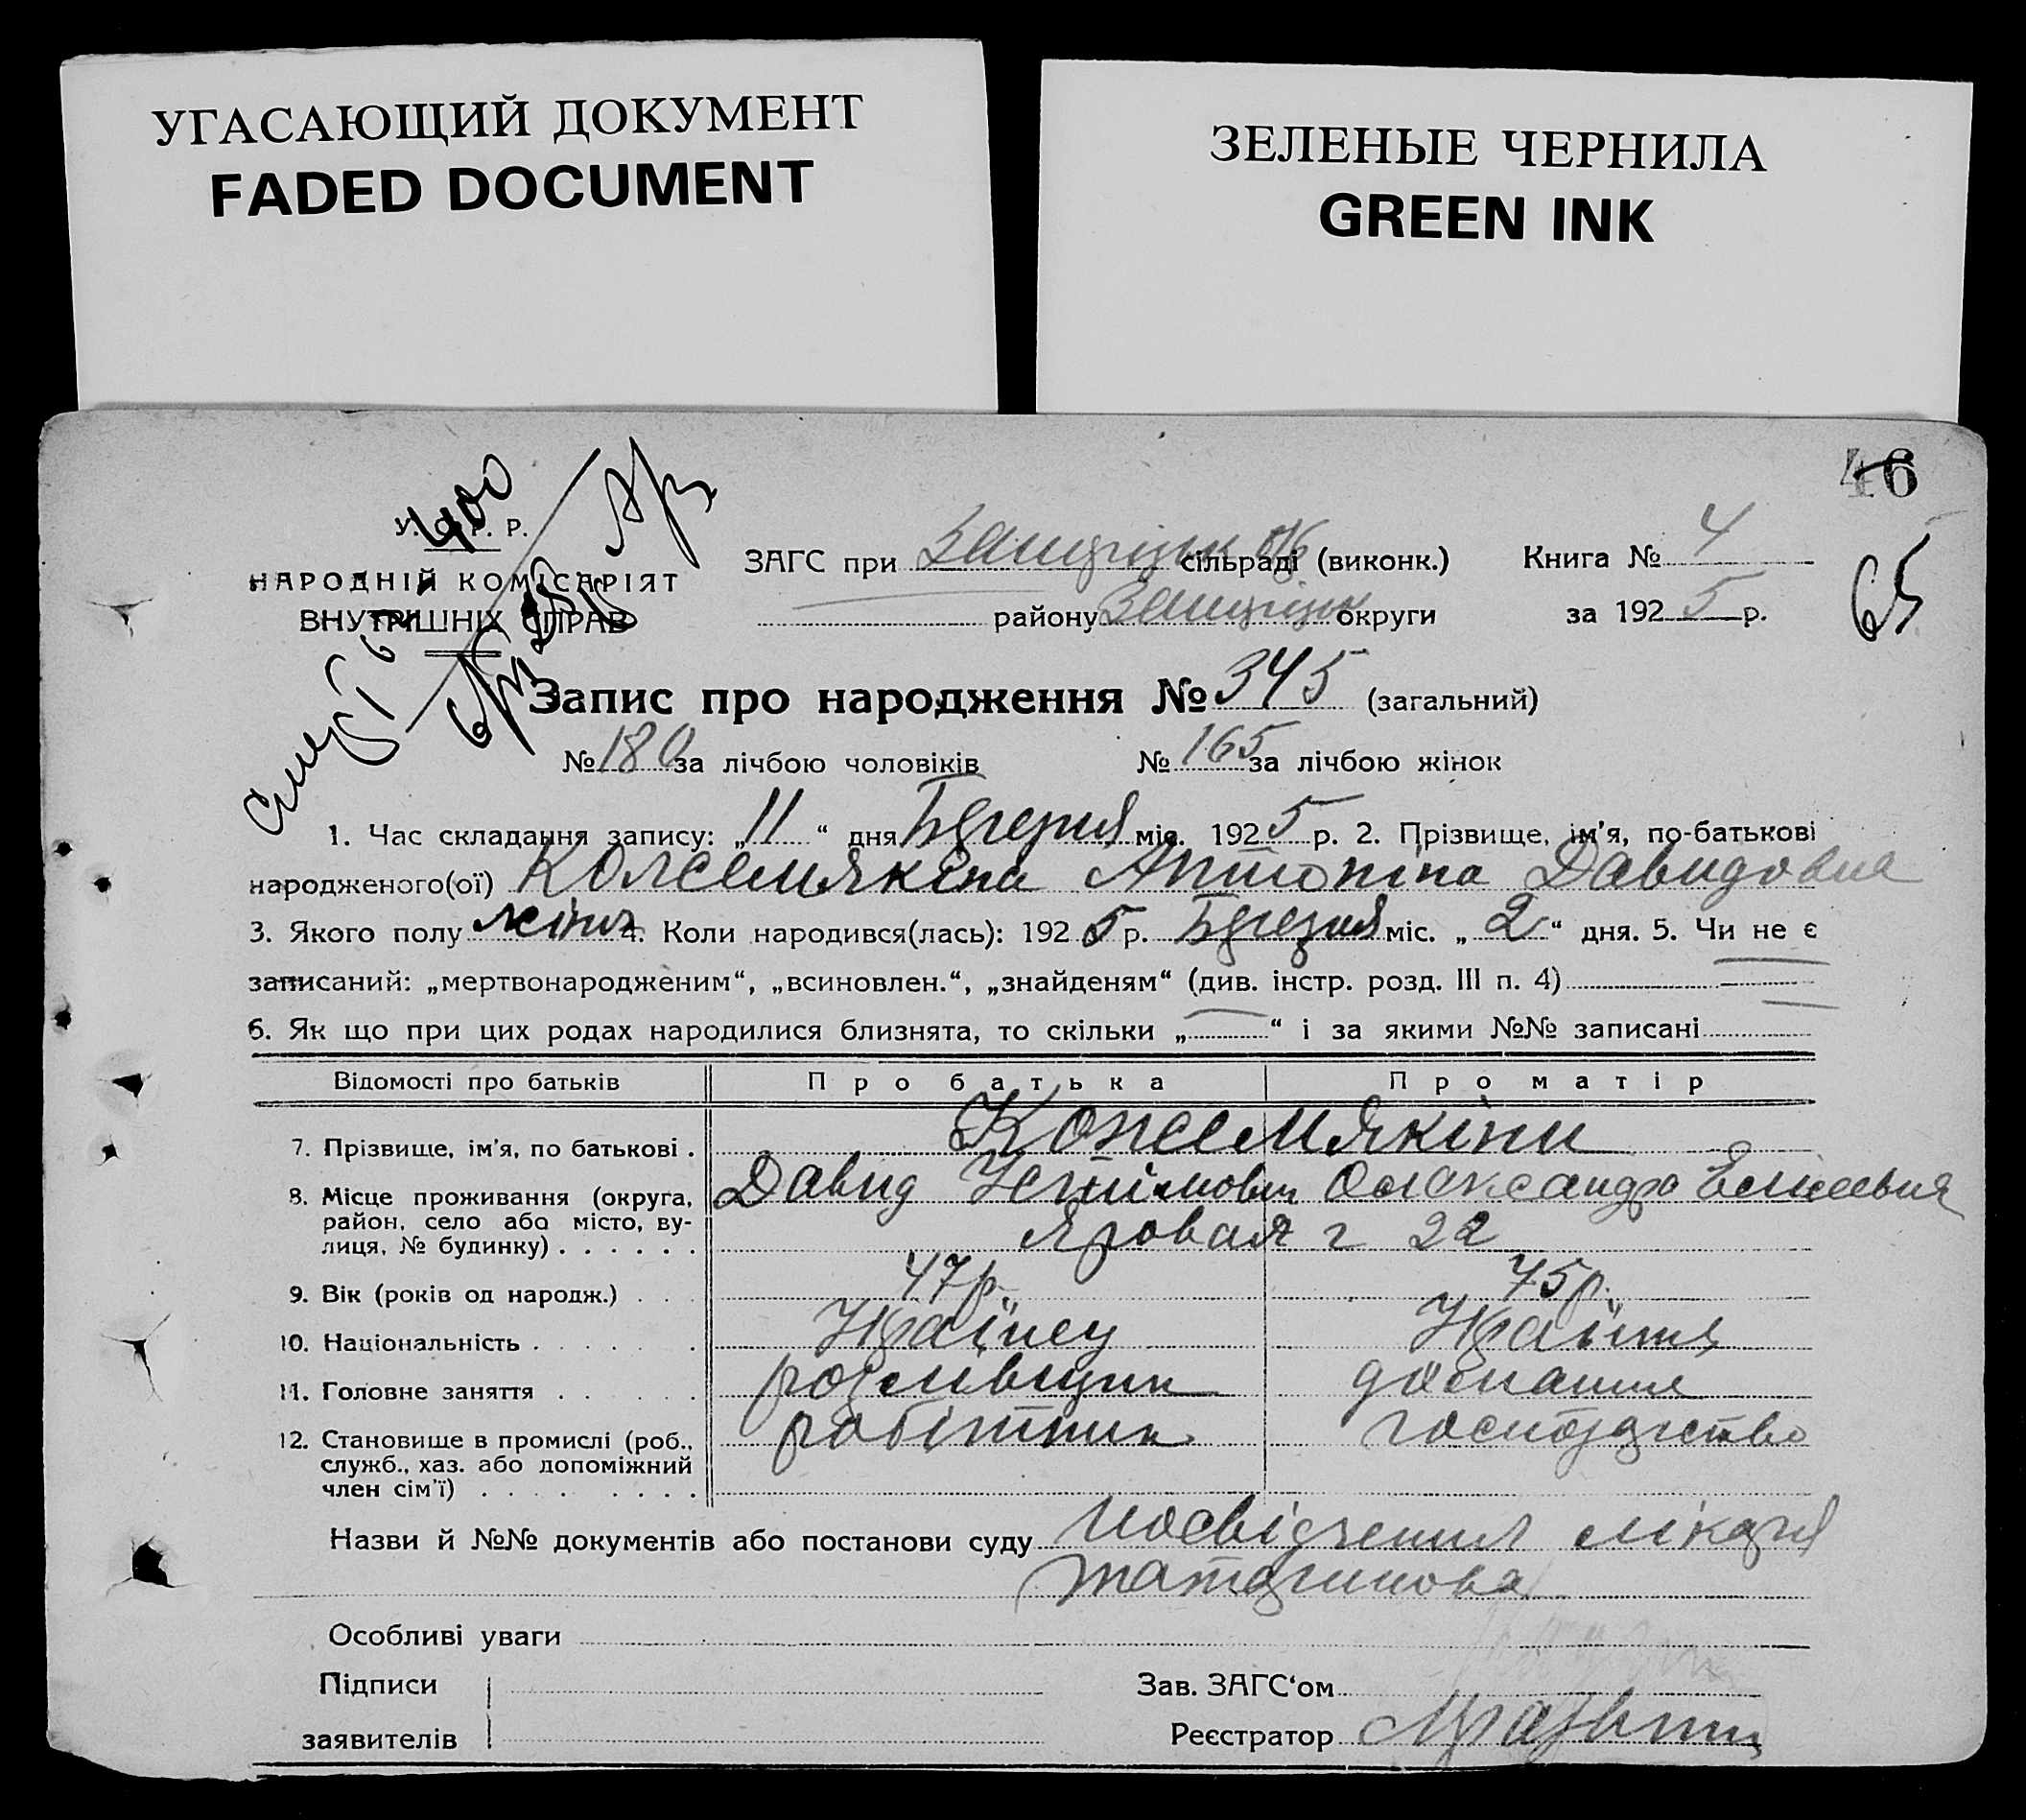 УГАСАЮЩИЙ ДОКУМЕНТ
FADED DOCUMENT
ЗЕЛЕНЫЕ ЧЕРНИЛА
GREEN INK
46
65
400
У. С. Р. Р.
НАРОДНІЙ КОМІСАРІЯТ
ВНУТРІШНІХ СПРАВ
ЗАГС при сільраді (виконк.) Книга № 4
району округи за 1925 р.
Запис про народження № 345 (загальний)
№ 180 за лічбою чоловіків № 165 за лічбою жінок
1. Час складання запису: „11“ дня Березня міс. 1925 р. 2. Прізвище, ім'я, по-батькові
народженого(ої) Кожемякіна Антоніна Давидовна
3. Якого полу жіноч 4. Коли народився(лась): 1925 р. Березня міс. „2“ дня. 5. Чи не є
записаний: „мертвонародженим“, „всиновлен.“, „знайденям“ (див. інстр. розд. III п. 4)
6. Як що при цих родах народилися близнята, то скільки „ “ і за якими №№ записані
Відомості про батьків Про батька Про матір
7. Прізвище, ім'я, по батькові . Кожемякіни
Давид Устімович Олександра
8. Місце проживання (округа, район, село або місто, вулиця, № будинку) . . . . . . Яровая г 22
9. Вік (років од народж.) . . . 47р. 45р.
10. Національність . . . . . . Українец Українка
11. Головне заняття . . . . . домашне
12. Становище в промислі (роб., служб., хаз. або допоміжний член сім'ї) . . . . . . . . робітник господарство
Назви й №№ документів або постанови суду посвідчення лікаря
Особливі уваги
Підписи
заявителів
Зав. ЗАГС‘ом
Реєстратор